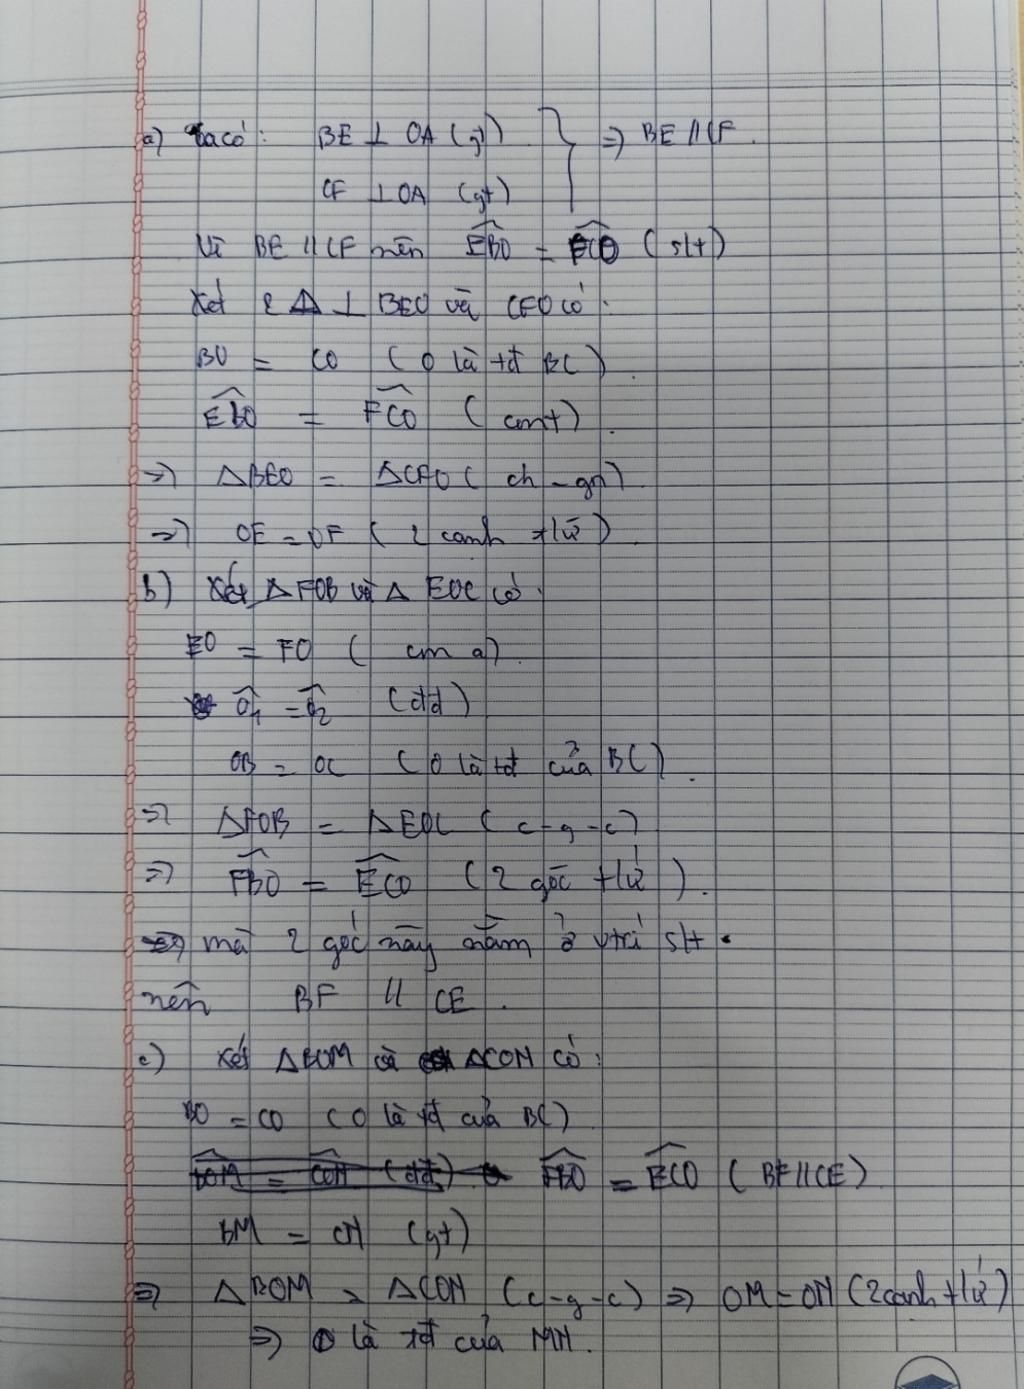 a) Ta có: BE ⊥ OA (gt) } ⇒ BE // CF.
CF ⊥ OA (gt)
Vì BE // CF nên EBO = FCO (slt)
Xét 2 Δ ⊥ BEO và CFO có:
BO = CO (O là tđ BC)
EBO = FCO (cmt).
⇒ ΔBEO = ΔCFO (ch - gn).
⇒ OE = OF (2 cạnh tứ)
b) Xét ΔFOB và Δ EOC có:
EO = FO (cm a)
O1 = O2 (đđ)
OB = OC (O là tđ của BC).
⇒ ΔFOB = ΔEOC (c-g-c)
⇒ FBO = ECO (2 góc tứ).
mà 2 góc này nằm ở vtrí slt.
nên BF // CE.
c) Xét ΔBOM và ΔCON có:
BO = CO (O là tđ của BC)
FBO = ECO (BF//CE).
BM = CN (gt)
⇒ ΔBOM = ΔCON (c-g-c) ⇒ OM = ON (2 cạnh tứ)
⇒ O là tđ của MN.